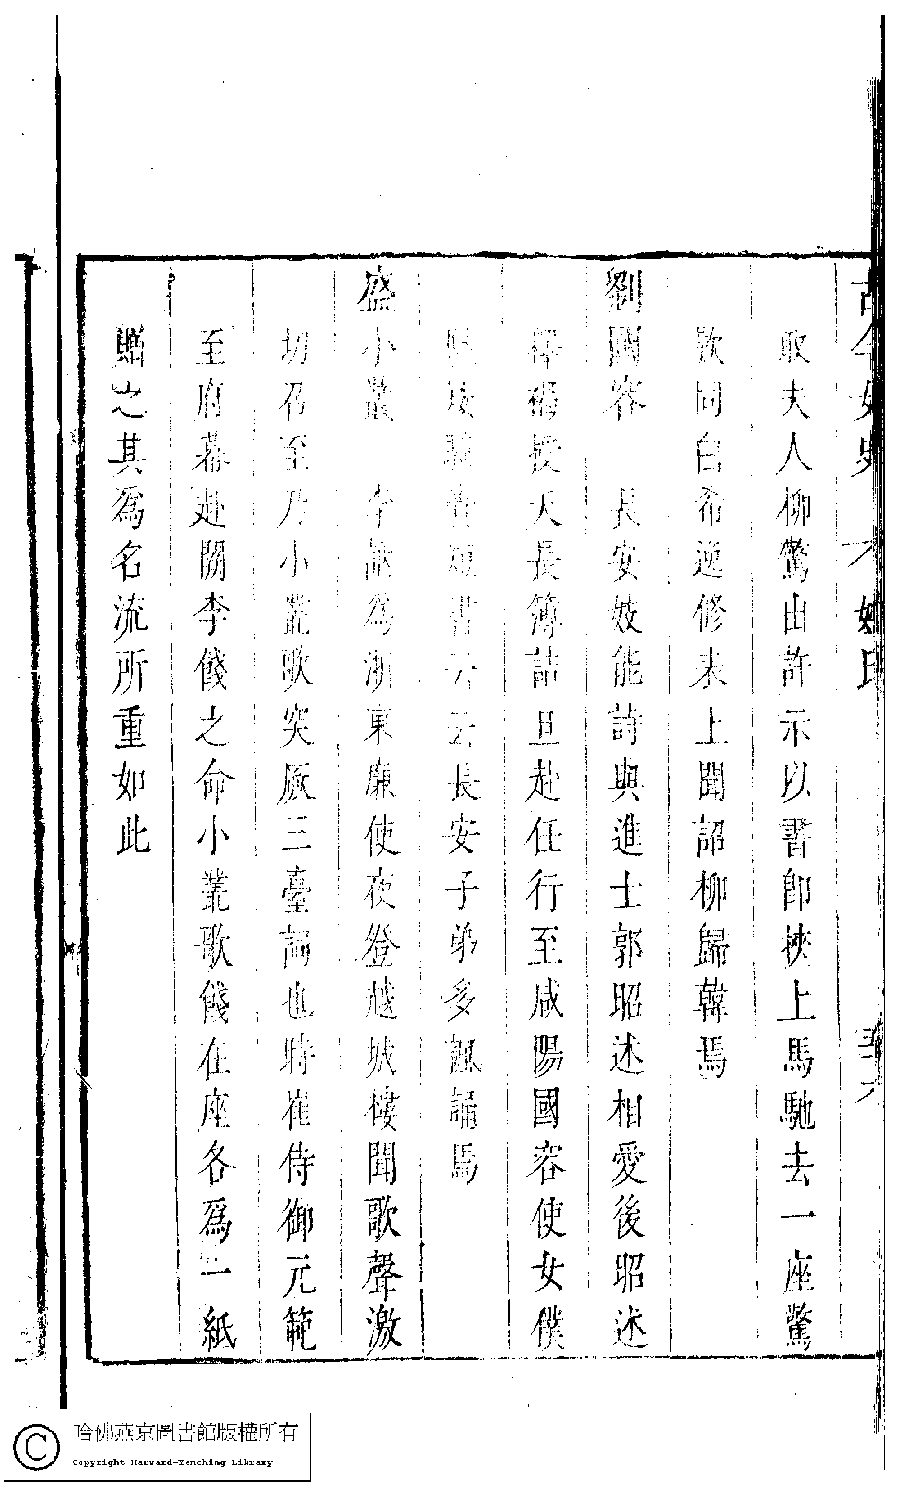 古今女史 姓氏
取夫人柳驚出許示以書即挾上馬馳去一座驚
歎同白希逸修表上聞詔柳歸韓焉
劉國容 長安妓能詩與進士郭昭述相愛後昭述
釋褐授天長簿詰旦赴任行至咸陽國容使女僕
書云云長安子弟多諷誦焉
盛小叢 李訥為浙東廉使夜登越城樓聞歌聲激
切召至乃小叢歌突厥三臺詞也時崔侍御元範
至府幕赴闕李餞之命小叢歌餞在座各爲一紙
贈之其爲名流所重如此
哈佛燕京圖書館版權所有
Copyright Harvard-Yenching Library